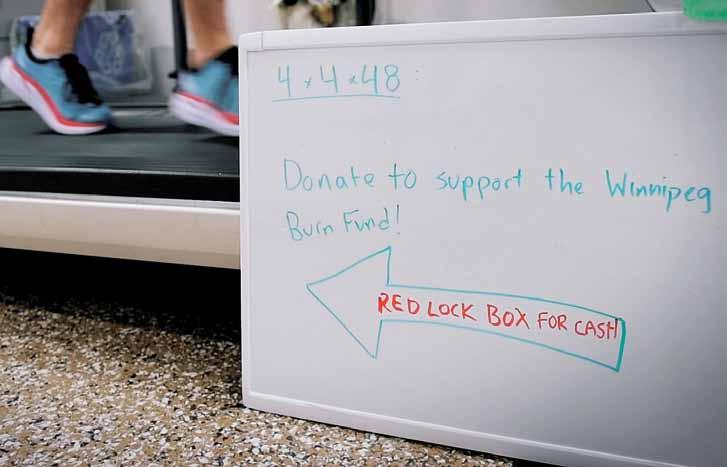 4x4x48:
Donate to support the Winnipeg
Burn Fund!
RED LOCK BOX FOR CASH